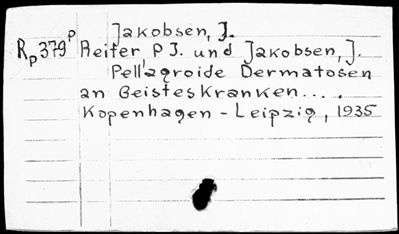 Jakobsen, J.
Rp379P Reiter P J. und Jakobsen, J.
Pellagroide Dermatosen
an Geisteskranken....
Kopenhagen - Leipzig, 1935